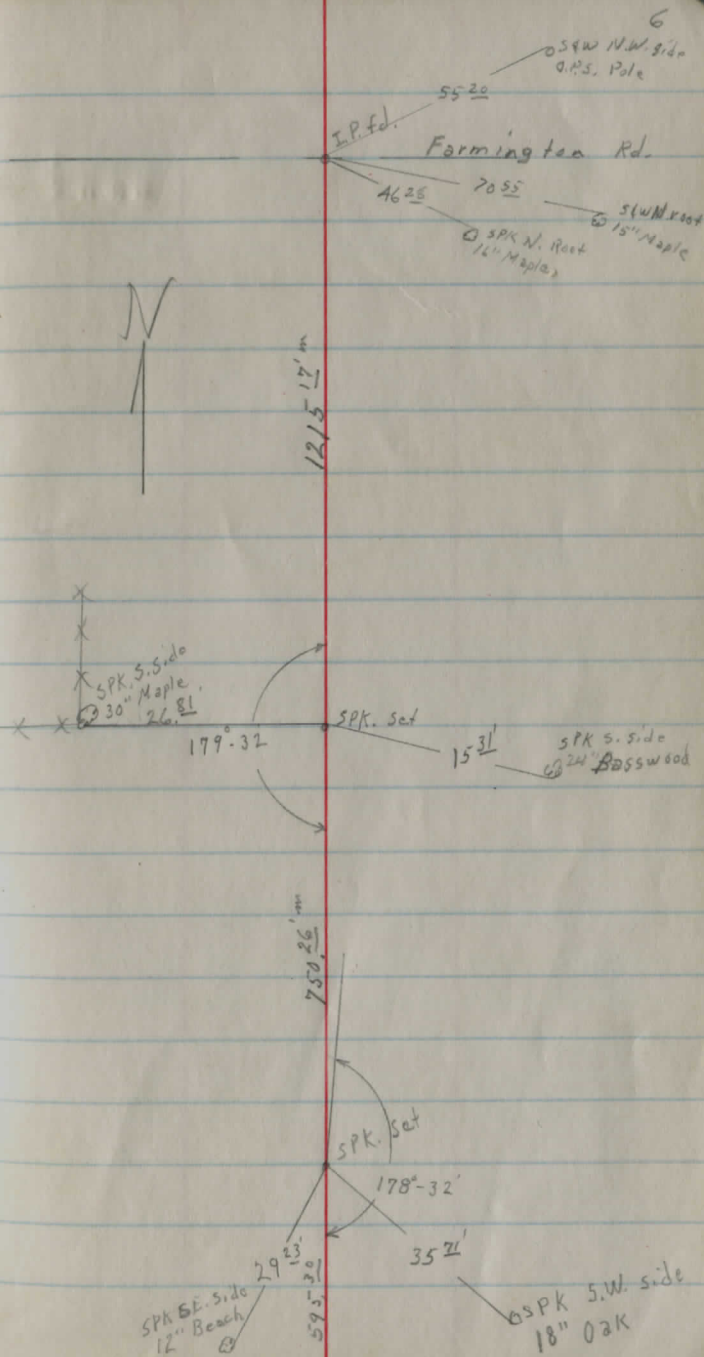 6
S&W N.W. side
O.P.S. Pole
55 20
I.P. fd.
Farmington Rd.
70 55
S&W N. root
15" Maple
46 25
SPK N. Root
16" Maple
N
1215 17' m
SPK. S. Side
30" Maple
26.81
179°-32
SPK. set
15 31'
SPK S. Side
24" Basswood
750.26' m
SPK. Set
178°-32'
29 23'
35 71'
SPK S.E. Side
12" Beach
595.30
SPK S.W. side
18" Oak